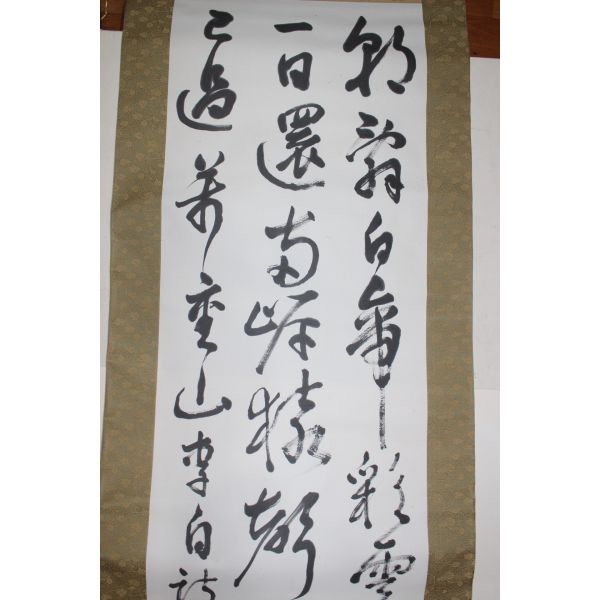 朝辭白帝彩雲
一日還兩岸猿聲
已過萬重山李白詩